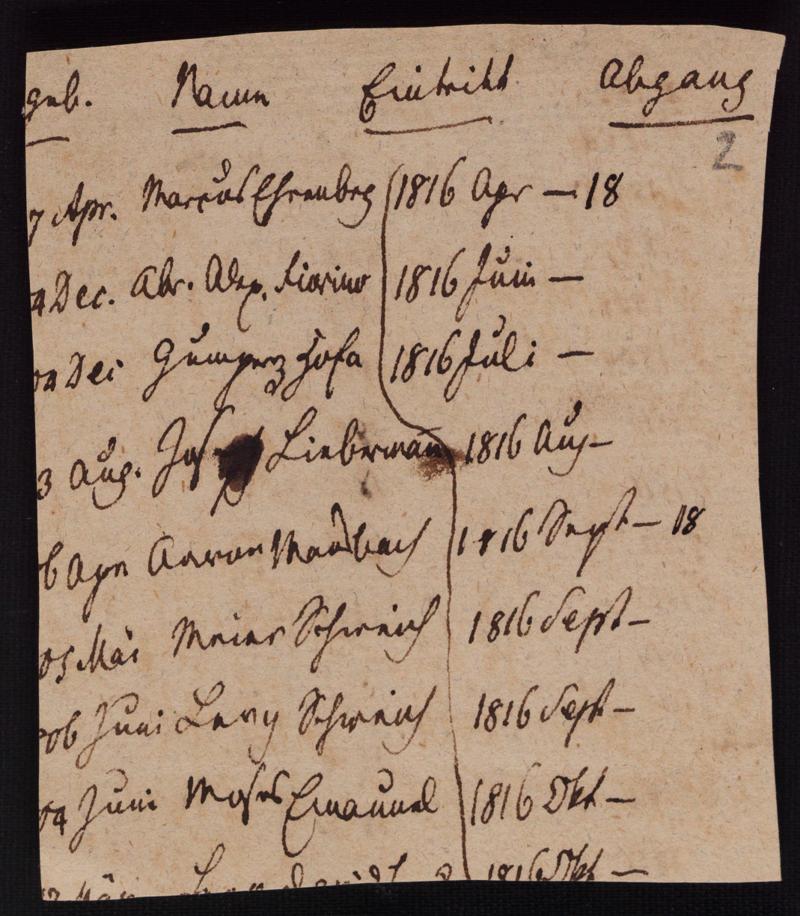 geb. Namen Eintritt Abgang
2
7 Apr. Marcus Ehrenberg 1816 Apr — 18
4 Dec. Abr. Alex. Fiorino 1816 Juni —
04 Dec Gumperz 1816 Juli —
3 Aug. Josep Lieberman 1816 Aug —
6 Apr Aaron Mansbach 1816 Sept — 18
05 Mäi Meier Schweich 1816 Sept —
06 Juni Levy Schweich 1816 Sept —
04 Juni Moses Emanuel 1816 Okt —
1816 Okt —